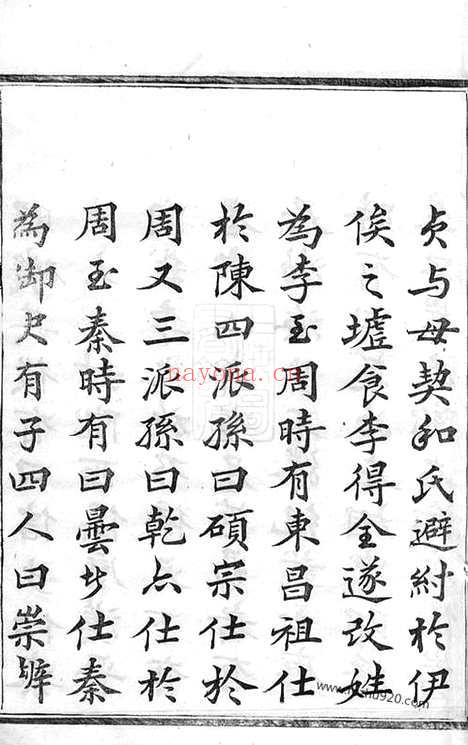 貞与母契和氏避紂於伊
侯之墟食李得全遂改姓
為李至周時有東昌祖仕
於陳四派孫曰碩宗仕於
周又三派孫曰乾亦仕於
周至秦時有曰曇者仕秦
為御史有子四人曰崇辟
nayona.cn